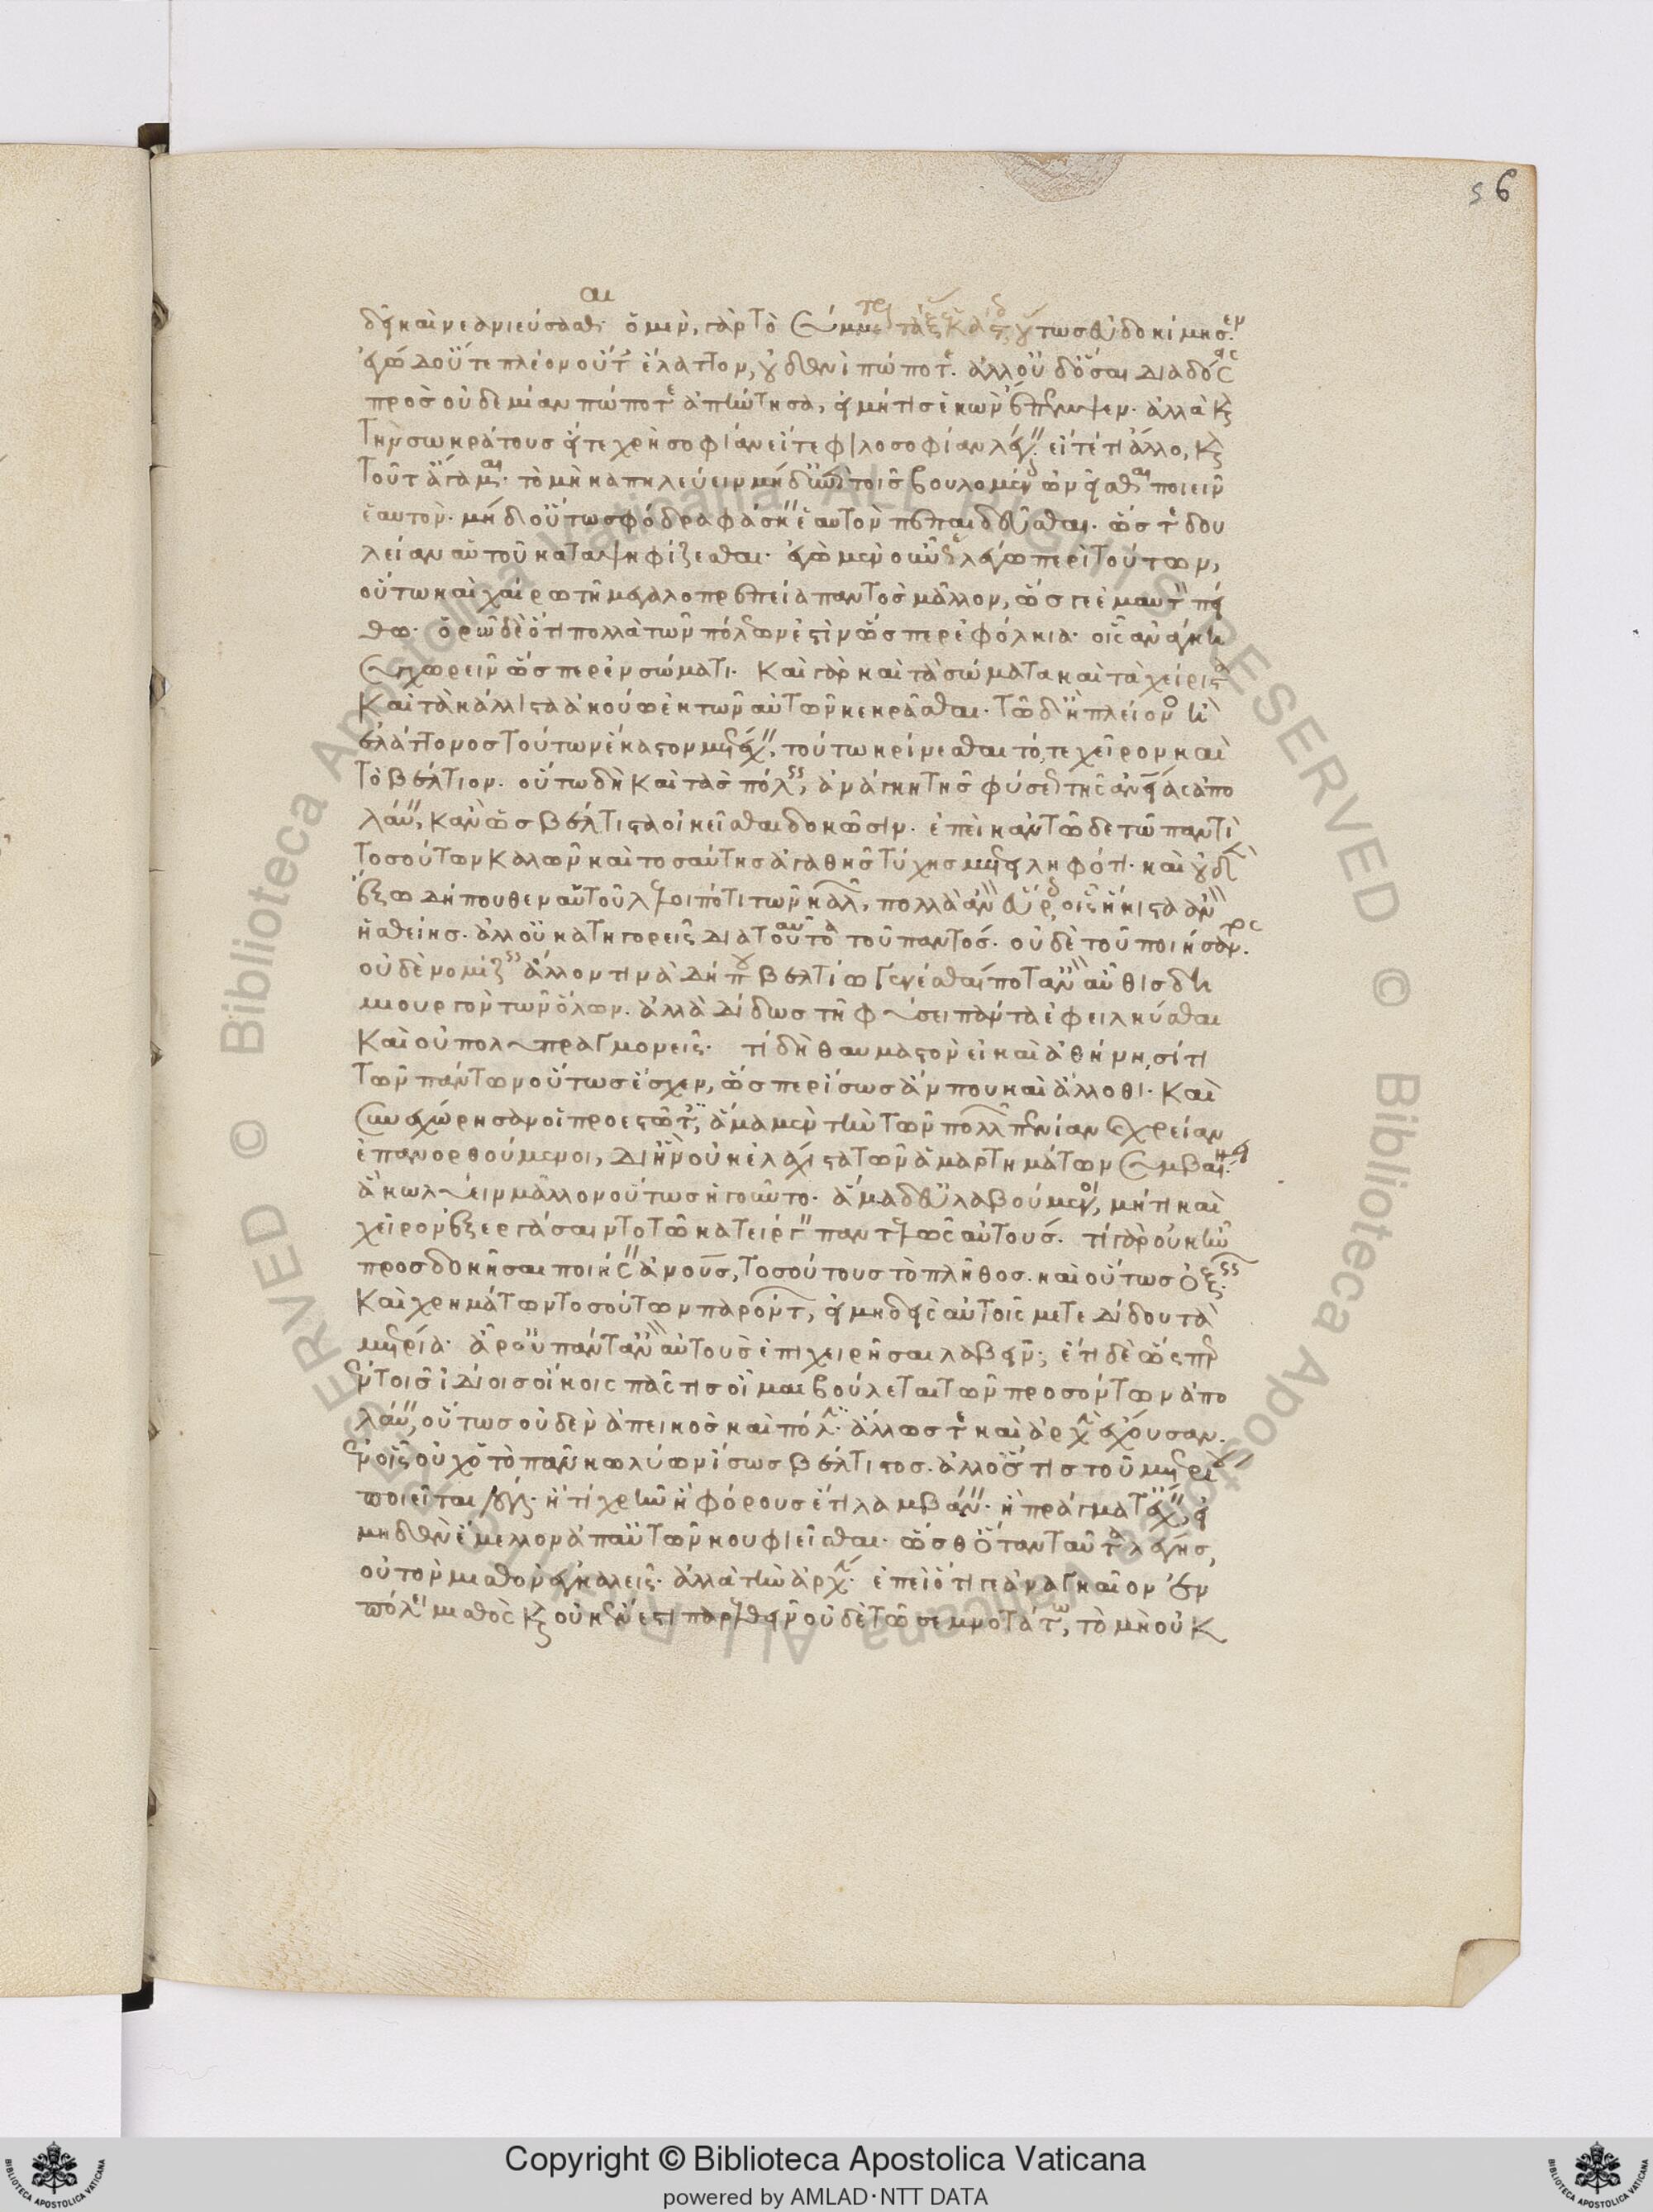 56
δεῖ καὶ νεανιεύσασθαι ὁ μὲν, γὰρ τὸ οὕτως εὐδοκίμησεν
ἐγὼ δ οὔτε πλέον οὔτ ἔλαττον, οὐδενὶ πώποτε. ἀλλ οὐδ
πρὸς οὐδεμίαν πώποτε ἀπήντησα, εἰ μή τις ἑκὼν ἔπεμψεν. ἀλλὰ καὶ
τὴν Σωκράτους εἴτε χρὴ σοφίαν εἴτε φιλοσοφίαν λέγειν εἴτέ τι ἄλλο, καὶ
τοῦτ ἄγαμαι. τὸ μὴ καπηλεύειν μηδ τοῖς βουλομένοις ὠνεῖσθαι ποιεῖν
ἑαυτόν. μήδ οὕτω σφόδρα φάσκειν ἑαυτὸν πεπαιδεῦσθαι. ὥστε δου
λείαν αὑτοῦ καταψηφίζεσθαι. ἐγὼ μὲν οὖν λέγω περὶ τούτων,
οὕτω καὶ χαίρω τῇ μεγαλοπρεπείᾳ παντὸς μᾶλλον, ὥς γε ἐμαυτὸν πεί
θω. ὁρῶ δὲ ὅτι πολλὰ τῶν πόλεών ἐστιν ὥσπερ ἐφόλκια. οἷς ἀνάγκη
συγχωρεῖν ὥσπερ ἐν σώματι. καὶ γὰρ καὶ τὰ σώματα καὶ τὰ χείριστα
καὶ τὰ κάλλιστα ἀκούω ἐκ τῶν αὐτῶν κεκρᾶσθαι. τῷ δὴ πλείονος ἢ
ἐλάττονος τούτων ἕκαστον μετέχειν, τούτῳ κρίνεσθαι τό, τε χεῖρον καὶ
τὸ βέλτιον. οὕτω δὴ καὶ τὰς πόλεις, ἀνάγκη τῆς φύσεως τῆς ἀνθρωπείας ἀπο
λαύειν, κἂν ὡς βέλτιστα οἰκεῖσθαι δοκῶσιν. ἐπεὶ κἂν τῷδε τῷ παντὶ
τοσούτων καλῶν καὶ τοσαύτης ἀγαθῆς τύχης μετειληφότι. καὶ οὐδὲν
ἔξω δήπουθεν αὑτοῦ λελοιπότι τῶν καλῶν, πολλὰ ἂν εὕροις οἷς ἥκιστα ἂν
ἡσθείης. ἀλλ οὐ κατηγορεῖς διὰ ταῦτα τοῦ παντός. οὐδὲ τοῦ ποιήσαντος.
οὐδὲ νομίζεις ἄλλον τινὰ δήπου βελτίω γενέσθαι ποτ ἂν αὖθις δη
μιουργὸν τῶν ὅλων. ἀλλὰ δίδως τῇ φύσει πάντα ἐφειλκύσθαι
καὶ οὐ πολυπραγμονεῖς. τί δὴ θαυμαστὸν εἰ καὶ Ἀθήνησί τι
τῶν πάντων οὕτως ἔσχεν, ὥσπερ ἴσως ἄν που καὶ ἄλλοθι. καὶ
συνεχώρησαν οἱ προεστῶτες, ἅμα μὲν τὴν τῶν πολλῶν πενίαν καὶ χρείαν
ἐπανορθούμενοι, δι ἣν οὐκ ἐλάχιστα τῶν ἁμαρτημάτων συμβαίνει.
ἃ κωλύειν μᾶλλον οὕτως ἡγοῦντο. ἅμα δ εὐλαβούμενοι, μή τι καὶ
χεῖρον ἐξεργάσαιντο τῷ κατείργειν παντελῶς αὐτούς. τί γὰρ οὐκ ἦν
προσδοκῆσαι ποιήσειν ἀνθρώπους, τοσούτους τὸ πλῆθος. καὶ οὕτως ὀξεῖς.
καὶ χρημάτων τοσούτων παρόντων, εἰ μηδεὶς αὐτοῖς μετεδίδου τὰ
μέτρια. ἆρ οὐ πάντ ἂν αὐτοὺς ἐπιχειρῆσαι λαβεῖν; ἔτι δὲ ὥσπερ
ἐν τοῖς ἰδίοις οἴκοις πᾶς τις οἶμαι βούλεται τῶν προσόντων ἀπο
λαύειν, οὕτως οὐδὲν ἀπεικὸς καὶ πόλιν. ἄλλως τε καὶ ἀρχὴν ἔχουσαν.
ἐν οἷς οὐχ ὁ τὸ πᾶν κωλύων ἴσως βέλτιστος. ἀλλ ὅστις τοῦ μετρίου
ποιεῖται λόγον. ἢ τί χρῆν ἢ φόρους ἔτι λαμβάνειν. ἢ πράγματ ἔχειν, εἰ
μηδὲν ἔμελλον ἀπ αὐτῶν κουφιεῖσθαι. ὥσθ ὅταν ταῦτα λέγῃς,
οὐ τὸν μισθὸν ἐγκαλεῖς. ἀλλὰ τὴν ἀρχήν. ἐπεὶ ὅτι γε ἀναγκαῖον ἦν
πόλει μισθὸς καὶ οὐκ ἔνεστι παρελθεῖν οὐδὲ τῷ σεμνοτάτῳ, τὸ μὴ οὐ κ
Copyright © Biblioteca Apostolica Vaticana
powered by AMLAD·NTT DATA